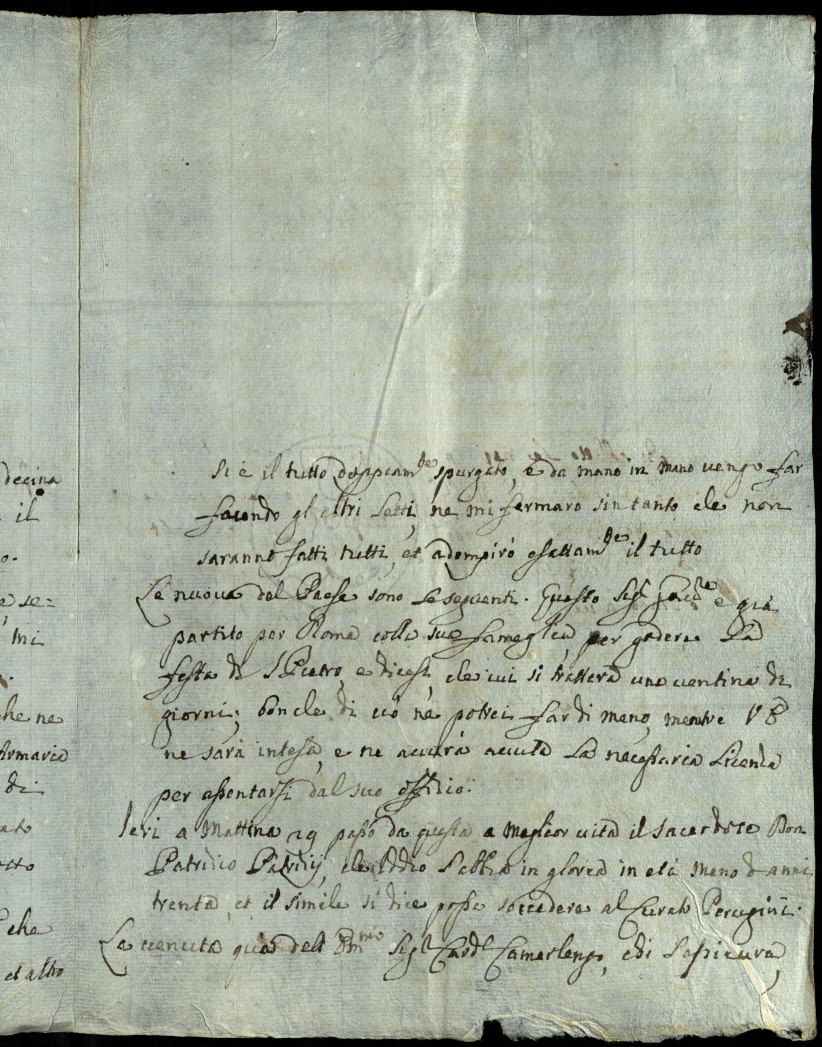 decina
il
o.
e se=
mi
che ne
Armaria
di
ato
che
et altro
si è il tutto doppiam.te spurgato, e da mano in mano vengo far
facendo gl'altri Letti, ne mi fermaro sin tanto che non
saranno fatti tutti, et adempirò esattam.te il tutto
Le nuove del Paese sono le seguenti. Questo Sig.r è già
partito per Roma colla sua fameglia, per godere La
festa di S. Pietro, e dicesi, che ivi si tratterà una ventina di
giorni; bonche di ciò ne potrei far di meno, mentre V E
ne sarà intesa, e ne averà avuta La necessaria Licenza
per assentarsi dal suo offizio.
Ieri a Mattina 29 passò da questa a meglior vita il Sacerdote Don
Patrizio Patrizij, che Iddio L'abbia in gloria in età meno d'anni
trenta, et il simile si dice possa soccedere al Curato Perugini.
La venuta quà dell' Em.mo Sig.r Card.l Camerlengo, edi L'assicura,